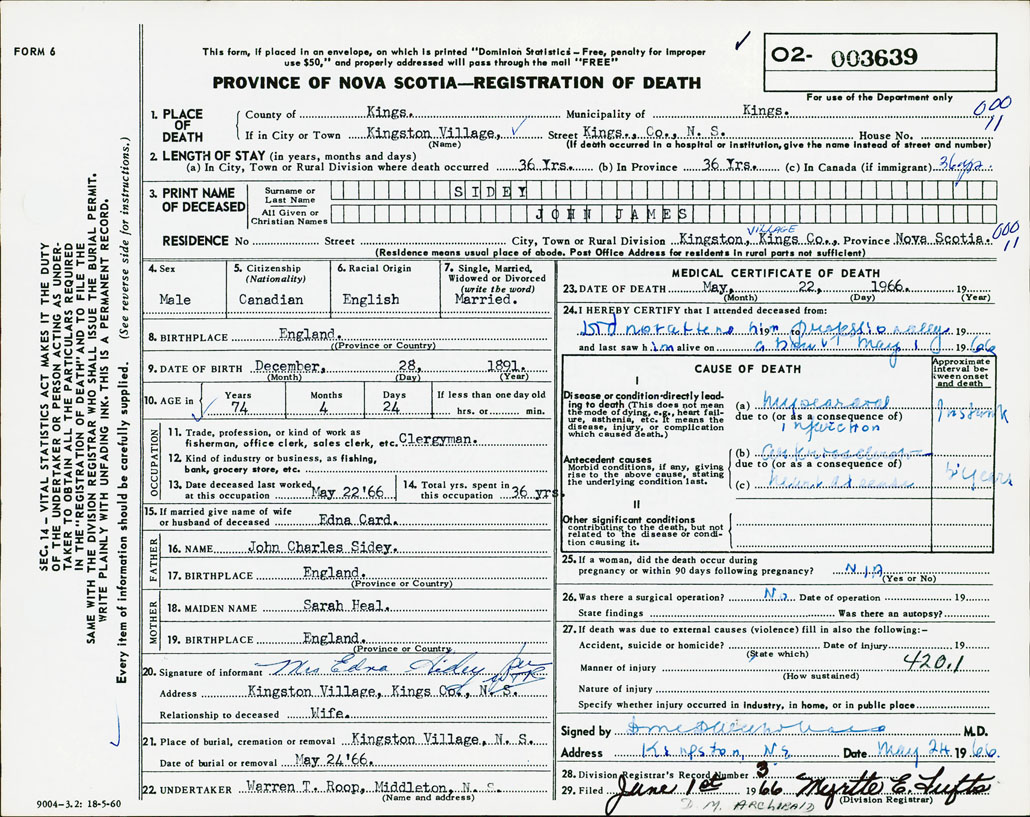 FORM 6
This form, if placed in an envelope, on which is printed "Dominion Statistics – Free, penalty for improper
use $50," and properly addressed will pass through the mail "FREE"
✓
O2- 003639
For use of the Department only
PROVINCE OF NOVA SCOTIA—REGISTRATION OF DEATH
SEC. 14 – VITAL STATISTICS ACT MAKES IT THE DUTY
OF THE UNDERTAKER OR PERSON ACTING AS UNDER-
TAKER TO OBTAIN ALL THE PARTICULARS REQUIRED
IN THE "REGISTRATION OF DEATH" AND TO FILE THE
SAME WITH THE DIVISION REGISTRAR WHO SHALL ISSUE THE BURIAL PERMIT.
WRITE PLAINLY WITH UNFADING INK. THIS IS A PERMANENT RECORD.
Every item of information should be carefully supplied. (See reverse side for instructions.)
1. PLACE OF DEATH
County of Kings. Municipality of Kings.
000 11
If in City or Town Kingston Village, ✓ Street Kings., Co., N. S. House No.
(Name) (If death occurred in a hospital or institution, give the name instead of street and number)
2. LENGTH OF STAY (in years, months and days)
(a) In City, Town or Rural Division where death occurred 36 Yrs. (b) In Province 36 Yrs. (c) In Canada (if immigrant) 36 yrs.
3. PRINT NAME OF DECEASED
Surname or Last Name SIDEY
All Given or Christian Names JOHN JAMES
RESIDENCE No Street City, Town or Rural Division Kingston, VILLAGE Kings Co., Province Nova Scotia. 000 11
(Residence means usual place of abode. Post Office Address for residents in rural parts not sufficient)
4. Sex Male
5. Citizenship (Nationality) Canadian
6. Racial Origin English
7. Single, Married, Widowed or Divorced (write the word) Married.
8. BIRTHPLACE England.
(Province or Country)
9. DATE OF BIRTH December, 28, 1891.
(Month) (Day) (Year)
10. AGE in ✓ Years 74 Months 4 Days 24 If less than one day old hrs. or min.
OCCUPATION
11. Trade, profession, or kind of work as
fisherman, office clerk, sales clerk, etc. Clergyman.
12. Kind of industry or business, as fishing,
bank, grocery store, etc.
13. Date deceased last worked at this occupation May 22'66
14. Total yrs. spent in this occupation 36 yrs.
15. If married give name of wife
or husband of deceased Edna Card.
FATHER
16. NAME John Charles Sidey.
17. BIRTHPLACE England.
(Province or Country)
MOTHER
18. MAIDEN NAME Sarah Heal.
19. BIRTHPLACE England.
(Province or Country)
20. Signature of informant Mrs Edna Sidey per
Address Kingston Village, Kings Co., N. S.
Relationship to deceased Wife.
21. Place of burial, cremation or removal Kingston Village, N. S.
Date of burial or removal May 24'66.
22. UNDERTAKER Warren T. Roop, Middleton, N. S.
(Name and address)
9004-3.2: 18-5-60
MEDICAL CERTIFICATE OF DEATH
23. DATE OF DEATH May, 22, 1966.
(Month) (Day) (Year)
24. I HEREBY CERTIFY that I attended deceased from:
Did not attend him professionally 19
and last saw him alive on about May 1 1966
CAUSE OF DEATH
Approximate interval between onset and death
I
Disease or condition directly lead-
ing to death (This does not mean
the mode of dying, e.g., heart fail-
ure, asthenia, etc. It means the
disease, injury, or complication
which caused death.)
(a) Myocardial
due to (or as a consequence of)
infarction
Antecedent causes
Morbid conditions, if any, giving
rise to the above cause, stating
the underlying condition last.
(b)
due to (or as a consequence of)
(c) heart disease
years
II
Other significant conditions
contributing to the death, but not
related to the disease or condi-
tion causing it.
25. If a woman, did the death occur during
pregnancy or within 90 days following pregnancy?
(Yes or No)
26. Was there a surgical operation? No Date of operation 19
State findings Was there an autopsy?
27. If death was due to external causes (violence) fill in also the following:–
Accident, suicide or homicide? Date of injury 19
(State which)
Manner of injury 420.1
(How sustained)
Nature of injury
Specify whether injury occurred in industry, in home, or in public place
Signed by M.D.
Address Kingston, NS Date May 24 1966.
28. Division Registrar's Record Number 3
29. Filed June 1st 1966 Myrtle E. Tufts
(Division Registrar)
D. M. ARCHIBALD